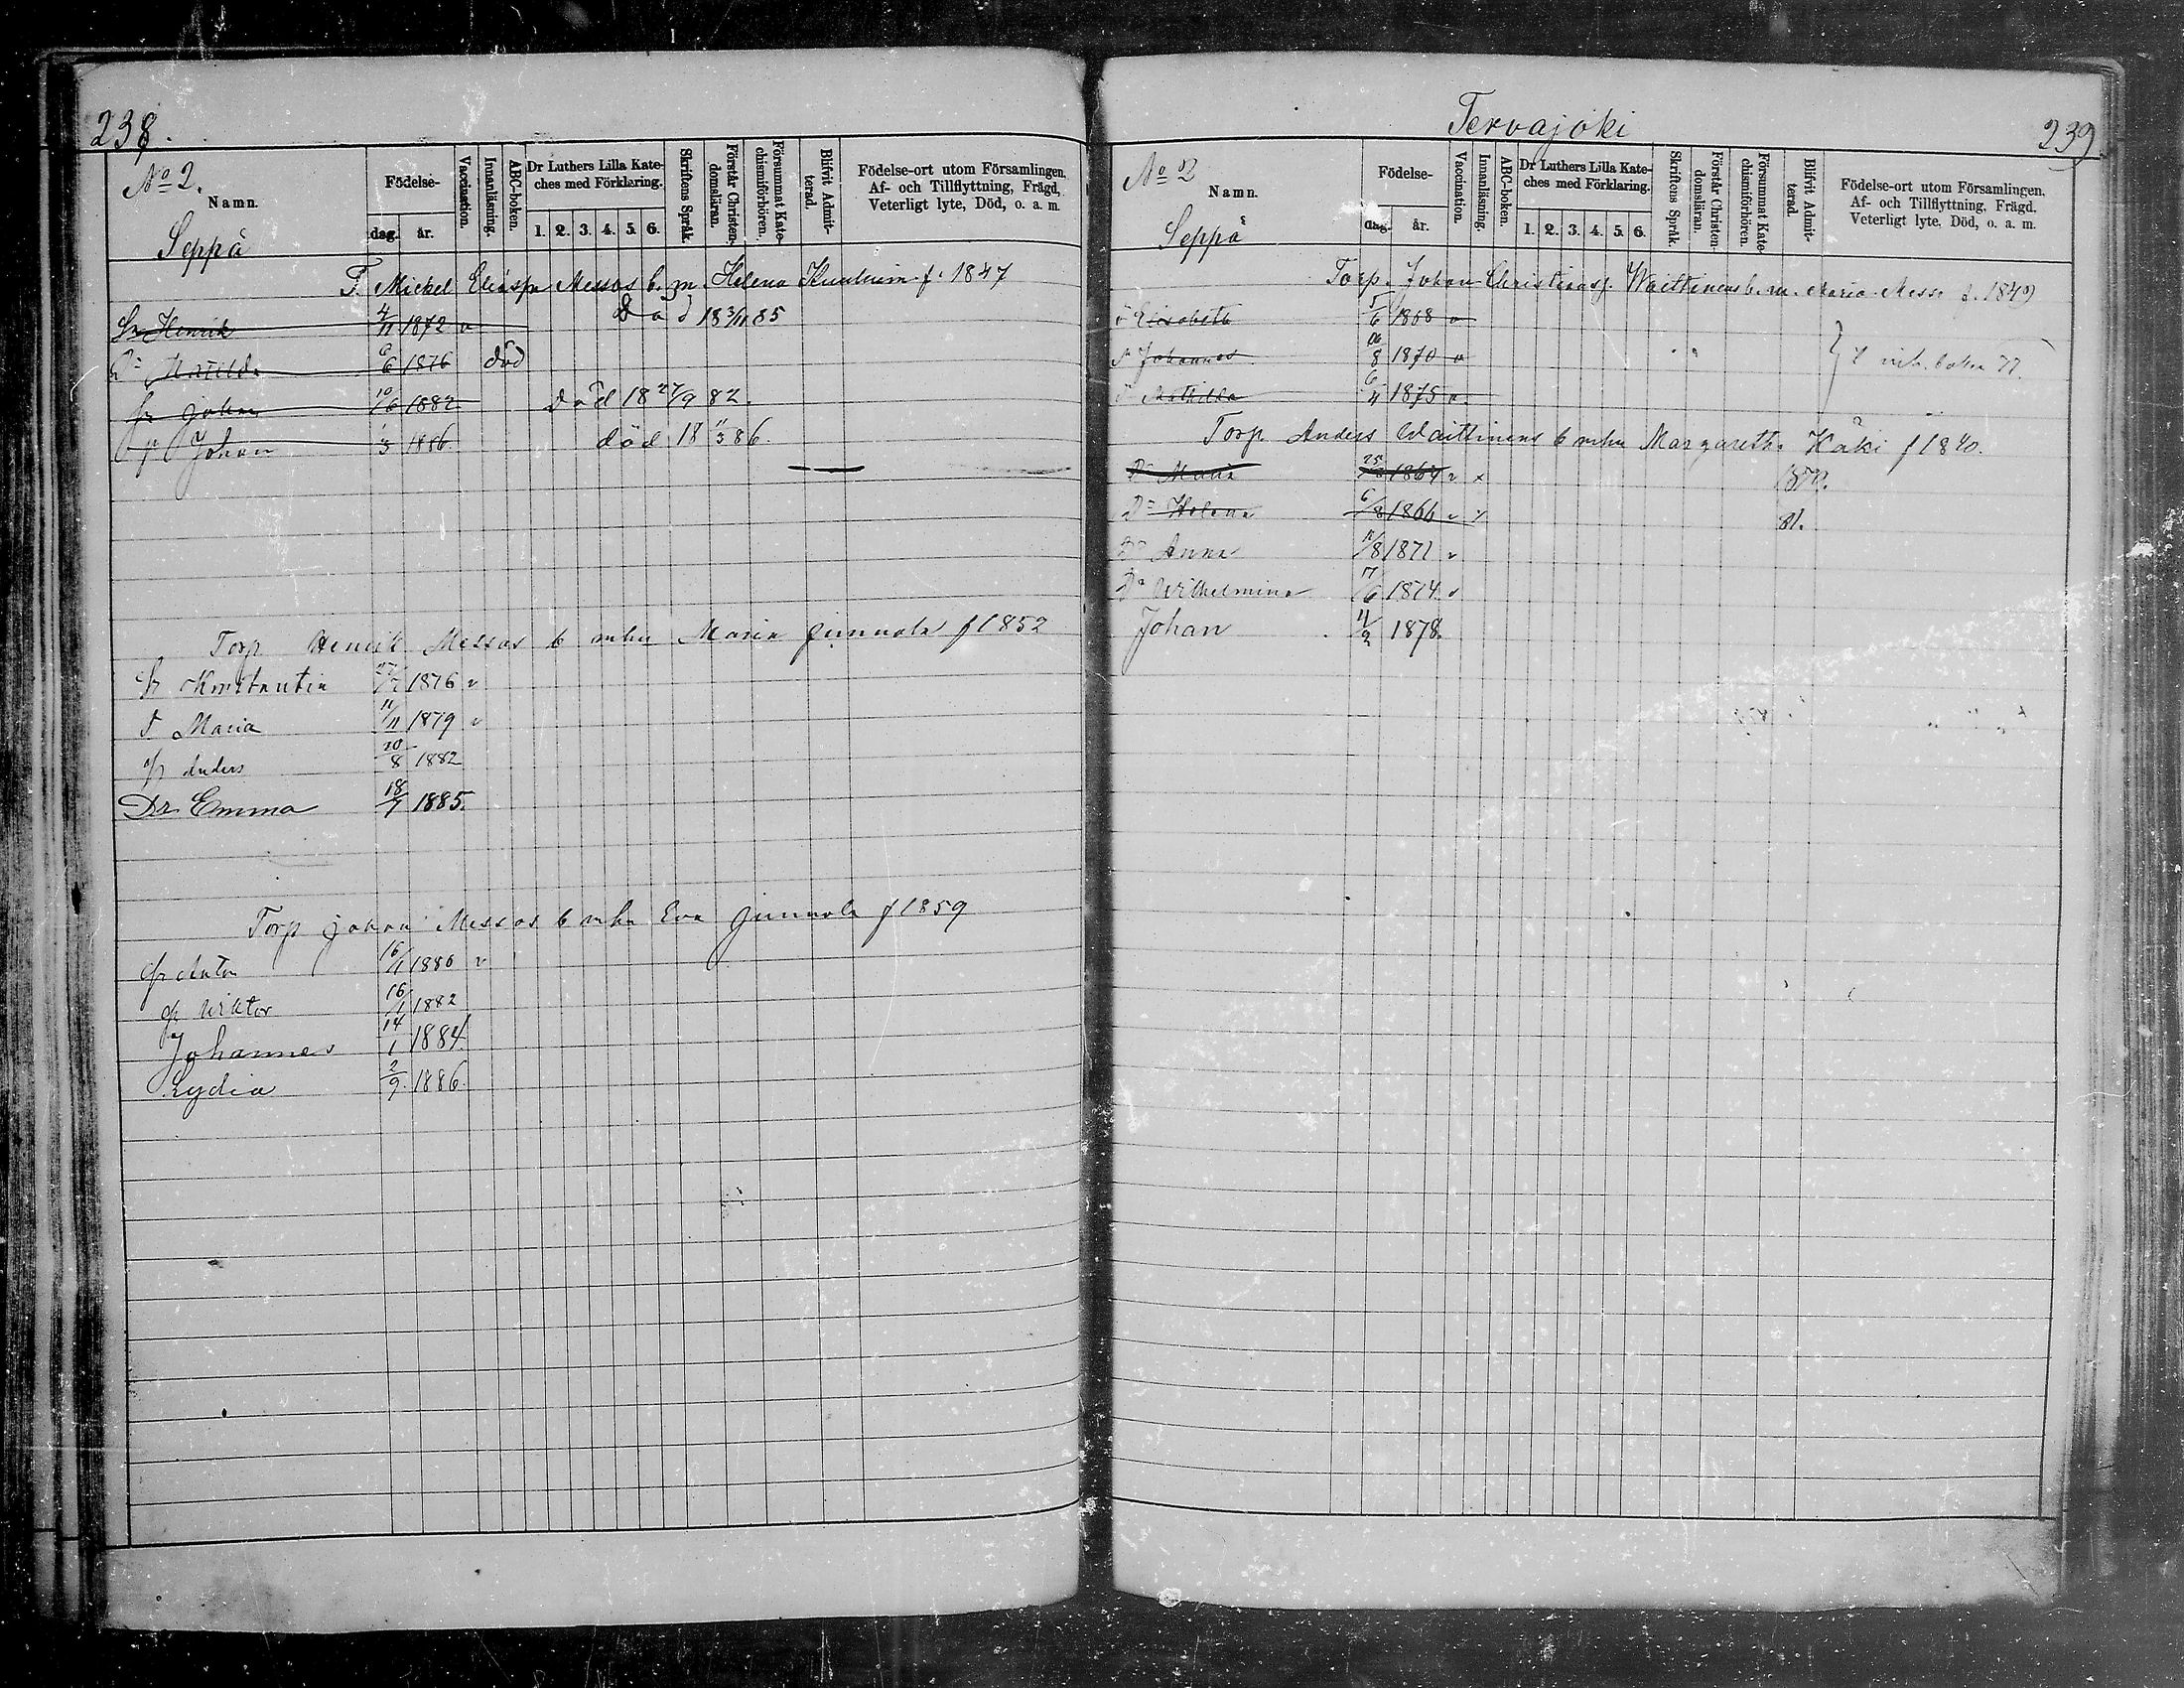 238.
No 2.
Namn.
Födelse-
dag. år.
Vaccination.
Innanläsning.
ABC-boken.
Dr Luthers Lilla Kate-
ches med Förklaring.
1. 2. 3. 4. 5. 6.
Skriftens Språk.
Förstår Christen-
domsläran.
Försummat Kate-
chismiförhören.
Blifvit Admit-
terad.
Födelse-ort utom Församlingen.
Af- och Tillflyttning, Frägd,
Veterligt lyte, Död, o. a. m.
Seppä
T. Mickel Eliasps Messos b. m. Helena f. 1847
Sr Henrik 4/11 1872 v Död 18 3/11 85
Matilda 6/6 1876 död
sr Johan 10/6 1882 död 18 27/9 82.
Johan 1/3 1886. död 18 11/3 86.
Torp Henrik Messos b mhu Maria Junnola f 1852
sr Konstantin 1876 v
d. Maria 11/11 1879 v
sr Anders 20/8 1882
Dr Emma 18/7 1885.
Torp Johan Messos b mhu Eva Junnola f 1859
sr Anton 16/1 1880 v
sr Wiktor 16/1 1882
Johannes 14/1 1884.
Lydia 2/9. 1886.
Tervajoki
239
No 2
Namn.
Födelse-
dag. år.
Vaccination.
Innanläsning.
ABC-boken.
Dr Luthers Lilla Kate-
ches med Förklaring.
1. 2. 3. 4. 5. 6.
Skriftens Språk.
Förstår Christen-
domsläran.
Försummat Kate-
chismiförhören.
Blifvit Admit-
terad.
Födelse-ort utom Församlingen.
Af- och Tillflyttning, Frägd,
Veterligt lyte, Död, o. a. m.
Seppä
Torp. Johan Christiansj. Waittinens b. m. Maria Messo f. 1849
Elisabeth 5/6 1868 v
Johannes 1870 v
Mathilda 6/4 1875 v.
Torp Anders Waittinens b mhu Margareta Käki f 1840.
Dr Maria 1864 v x
Dr Helena 6/8 1866 v x 81.
Dr Anna 11/8 1871 v
Dr Wilhelmina 17/6 1874. v
Johan 11/2 1878.